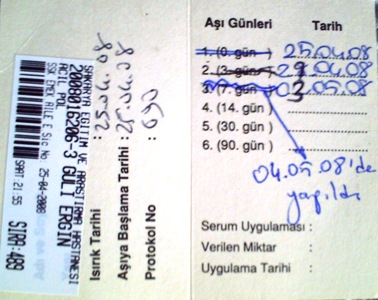 SAKARYA EĞİTİM VE ARAŞTIRMA HASTANESİ
2008016206-3 GÜLİ ERGİN
ACİL POL
SSK EMEKLİ AİLE
25-04-2008
SAAT:21:55
SIRA:489
Isırık Tarihi : 25.04.08
Aşıya Başlama Tarihi : 25.04.08
Protokol No : 690
Aşı Günleri Tarih
1. (0. gün ) 25.04.08
2. (3. gün ) 29.04.08
3. (7. gün ) 03.05.08
4. (14. gün )
5. (30. gün )
6. (90. gün )
04.05.08'de
yapıldı
Serum Uygulaması :
Verilen Miktar :
Uygulama Tarihi :